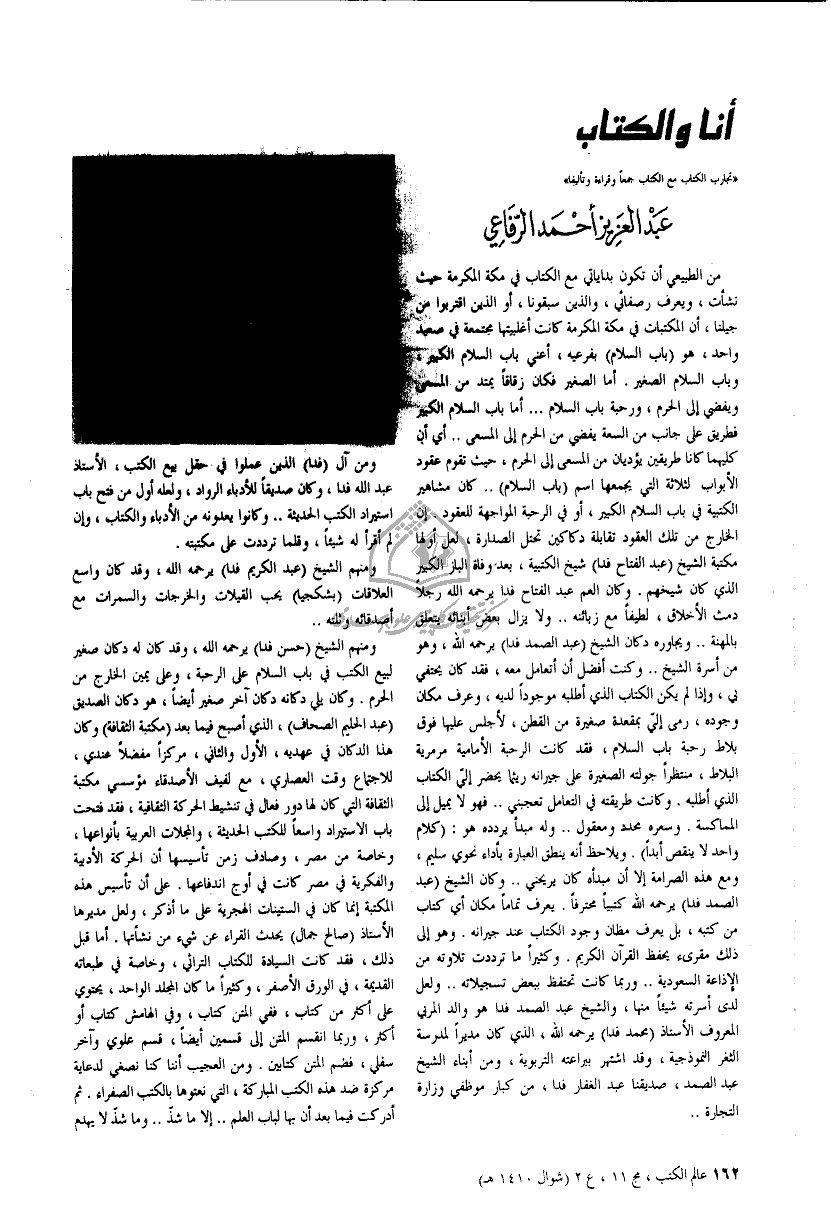 أنا والكتاب
«تجارب الكتاب مع الكتاب جمعاً وقراءة وتأليفا»
عبد العزيز أحمد الرفاعي
من الطبيعي أن تكون بداياتي مع الكتاب في مكة المكرمة حيث
نشأت ، ويعرف رصفائي ، والذين سبقونا ، أو الذين اقتربوا من
جيلنا ، أن المكتبات في مكة المكرمة كانت أغلبيتها مجتمعة في صعيد
واحد ، هو (باب السلام) بفرعيه ، أعني باب السلام الكبير ،
وباب السلام الصغير . أما الصغير فكان زقاقاً يمتد من المسعى
ويفضي إلى الحرم ، ورحبة باب السلام ... أما باب السلام الكبير
فطريق على جانب من السعة يفضي من الحرم إلى المسعى .. أي أن
كليهما كانا طريقين يؤديان من المسعى إلى الحرم ، حيث تقوم عقود
الأبواب لثلاثة التي يجمعها اسم (باب السلام) .. كان مشاهير
الكتبية في باب السلام الكبير ، أو في الرحبة المواجهة للعقود . إن
الخارج من تلك العقود تقابله دكاكين تحتل الصدارة ، لعل أولها
مكتبة الشيخ (عبد الفتاح فدا) شيخ الكتبية ، بعد وفاة الباز الكبير
الذي كان شيخهم . وكان العم عبد الفتاح فدا يرحمه الله رجلاً
دمث الأخلاق ، لطيفاً مع زبائنه .. ولا يزال بعض أبنائه يتعلق
بالمهنة .. ويجاوره دكان الشيخ (عبد الصمد فدا) يرحمه الله ، وهو
من أسرة الشيخ .. وكنت أفضل أن أتعامل معه ، فقد كان يحتفي
بي ، وإذا لم يكن الكتاب الذي أطلبه موجوداً لديه ، وعرف مكان
وجوده ، رمى إليّ بمقعدة صغيرة من القطن ، لأجلس عليها فوق
بلاط رحبة باب السلام ، فقد كانت الرحبة الأمامية مرمرية
البلاط ، منتظراً جولته الصغيرة على جيرانه ريثما يحضر إليّ الكتاب
الذي أطلبه . وكانت طريقته في التعامل تعجبني .. فهو لا يميل إلى
المماكسة . وسعره محدد ومعقول .. وله مبدأ يردده هو : (كلام
واحد لا ينقص أبداً) . ويلاحظ أنه ينطق العبارة بأداء نحوي سليم ،
ومع هذه الصرامة إلا أن مبدأه كان يريحني .. وكان الشيخ (عبد
الصمد فدا) يرحمه الله كتبياً محترفاً . يعرف تماماً مكان أي كتاب
من كتبه ، بل يعرف مظان وجود الكتاب عند جيرانه . وهو إلى
ذلك مقرىء يحفظ القرآن الكريم . وكثيراً ما ترددت تلاوته من
الإذاعة السعودية .. وربما كانت تحتفظ ببعض تسجيلاته .. ولعل
لدى أسرته شيئاً منها ، والشيخ عبد الصمد فدا هو والد المربي
المعروف الأستاذ (محمد فدا) يرحمه الله ، الذي كان مديراً لمدرسة
الثغر النموذجية ، وقد اشتهر ببراعته التربوية ، ومن أبناء الشيخ
عبد الصمد ، صديقنا عبد الغفار فدا ، من كبار موظفي وزارة
التجارة ..
ومن آل (فدا) الذين عملوا في حقل بيع الكتب ، الأستاذ
عبد الله فدا ، وكان صديقاً للأدباء الرواد ، ولعله أول من فتح باب
استيراد الكتب الحديثة .. وكانوا يعدونه من الأدباء والكتاب ، وإن
لم أقرأ له شيئاً ، وقلما ترددت على مكتبته .
ومنهم الشيخ (عبد الكريم فدا) يرحمه الله ، وقد كان واسع
العلاقات (بشكجيا) يحب القيلات والخرجات والسمرات مع
أصدقائه وثلته ..
ومنهم الشيخ (حسن فدا) يرحمه الله ، وقد كان له دكان صغير
لبيع الكتب في باب السلام على الرحبة ، وعلى يمين الخارج من
الحرم . وكان يلي دكانه دكان آخر صغير أيضاً ، هو دكان الصديق
(عبد الحليم الصحاف) ، الذي أصبح فيما بعد (مكتبة الثقافة) وكان
هذا الدكان في عهديه ، الأول والثاني ، مركزاً مفضلاً عندي ،
للاجتماع وقت العصاري ، مع لفيف الأصدقاء مؤسسي مكتبة
الثقافة التي كان لها دور فعال في تنشيط الحركة الثقافية ، فقد فتحت
باب الاستيراد واسعاً للكتب الحديثة ، والمجلات العربية بأنواعها ،
وخاصة من مصر ، وصادف زمن تأسيسها أن الحركة الأدبية
والفكرية في مصر كانت في أوج اندفاعها . على أن تأسيس هذه
المكتبة إنما كان في الستينات الهجرية على ما أذكر ، ولعل مديرها
الأستاذ (صالح جمال) يحدث القراء عن شيء من نشأتها . أما قبل
ذلك ، فقد كانت السيادة للكتاب التراثي ، وخاصة في طبعاته
القديمة ، في الورق الأصفر ، وكثيراً ما كان المجلد الواحد ، يحتوي
على أكثر من كتاب ، ففي المتن كتاب ، وفي الهامش كتاب أو
أكثر ، وربما انقسم المتن إلى قسمين أيضاً ، قسم علوي وآخر
سفلي ، فضم المتن كتابين . ومن العجيب أننا كنا نصغي لدعاية
مركزة ضد هذه الكتب المباركة ، التي نعتوها بالكتب الصفراء . ثم
أدركت فيما بعد أن بها لباب العلم .. إلا ما شذّ .. وما شذّ لا يهدم
١٦٢ عالم الكتب ، مج ١١ ، ع ٢ (شوال ١٤١٠ هـ)